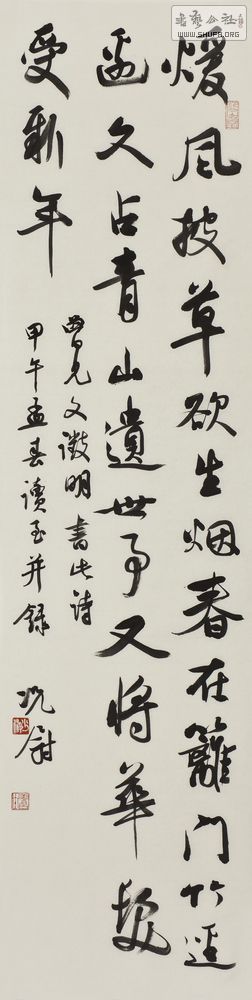 煖风披草欲生烟春在篱门竹迳
边久占青山遗世事又将华髮
受新年
曾见文徵明书此诗
甲午孟春读至并录
书艺公社
WWW.SHUFS.ORG